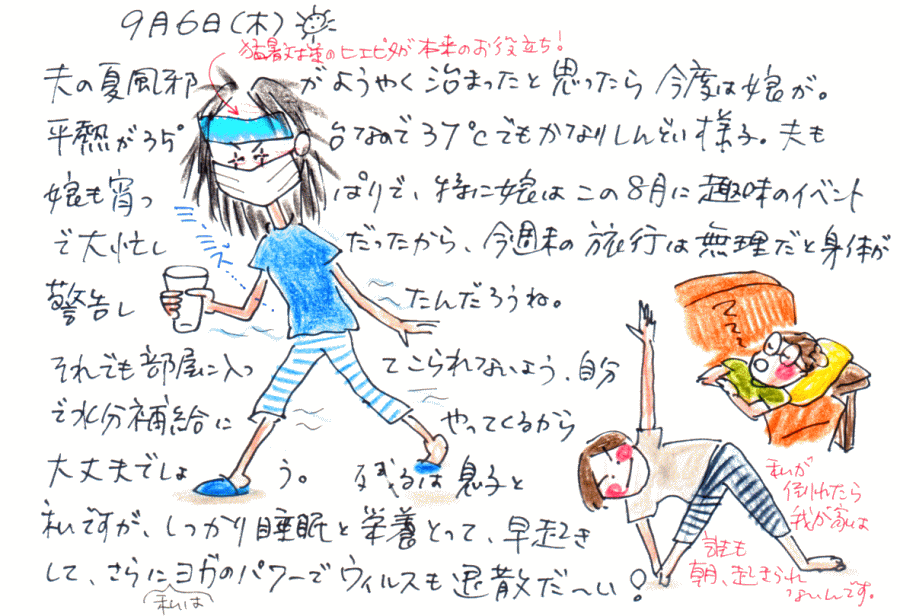 9月6日(木)
猛暑対策のヒエピタが本来のお役立ち!
夫の夏風邪がようやく治まったと思ったら今度は娘が。
平熱が35°台なので37℃でもかなりしんどい様子。夫も
娘も宵っぱりで、特に娘はこの8月に趣味のイベント
で大忙しだったから、今週末の旅行は無理だと身体が
警告したんだろうね。
それでも部屋に入ってこられてないよう、自分
で水分補給にやってくるから
大丈夫でしょう。残るは息子と
私ですが、しっかり睡眠と栄養とって、早起き
して、さらにヨガのパワーでウィルスも退散だ〜い!
私は
ズ
て
て
て
私が
倒れたら
我が家は
誰も
朝、起きられ
ないんです。